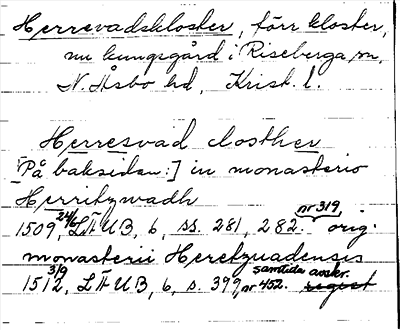 Herrevadskloster, förr kloster,
nu kungsgård i Riseberga sn,
N. Åsbo hd, Krist. l.
Herresvad closther
[På baksidan:] in monasterio
Herritzwadh
1509 24/6, LÄUB, 6, ss. 281, 282. nr 319 orig.
monasterii Heretzuadensis
1512 3/9, LÄUB, 6, s. 399, nr 452. samtida anskr.